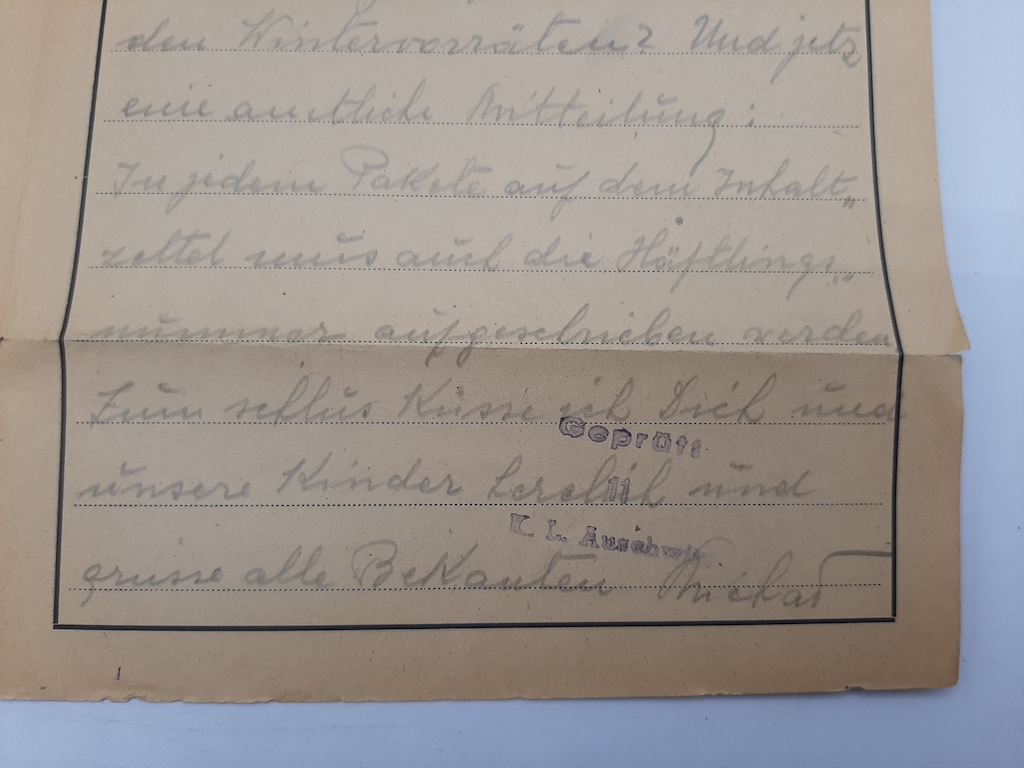 den Wintervorräten? Und jetz
eine amtliche Mitteilung:
In jedem Pakete auf dem Inhalt„
zettel mus auch die Häftlings„
nummer aufgeschrieben werden
Zum schlus Küsse ich Dich und
Geprüft
unsere Kinder herzlich und
11
K. L. Auschwitz
grüsse alle Bekanten Michał